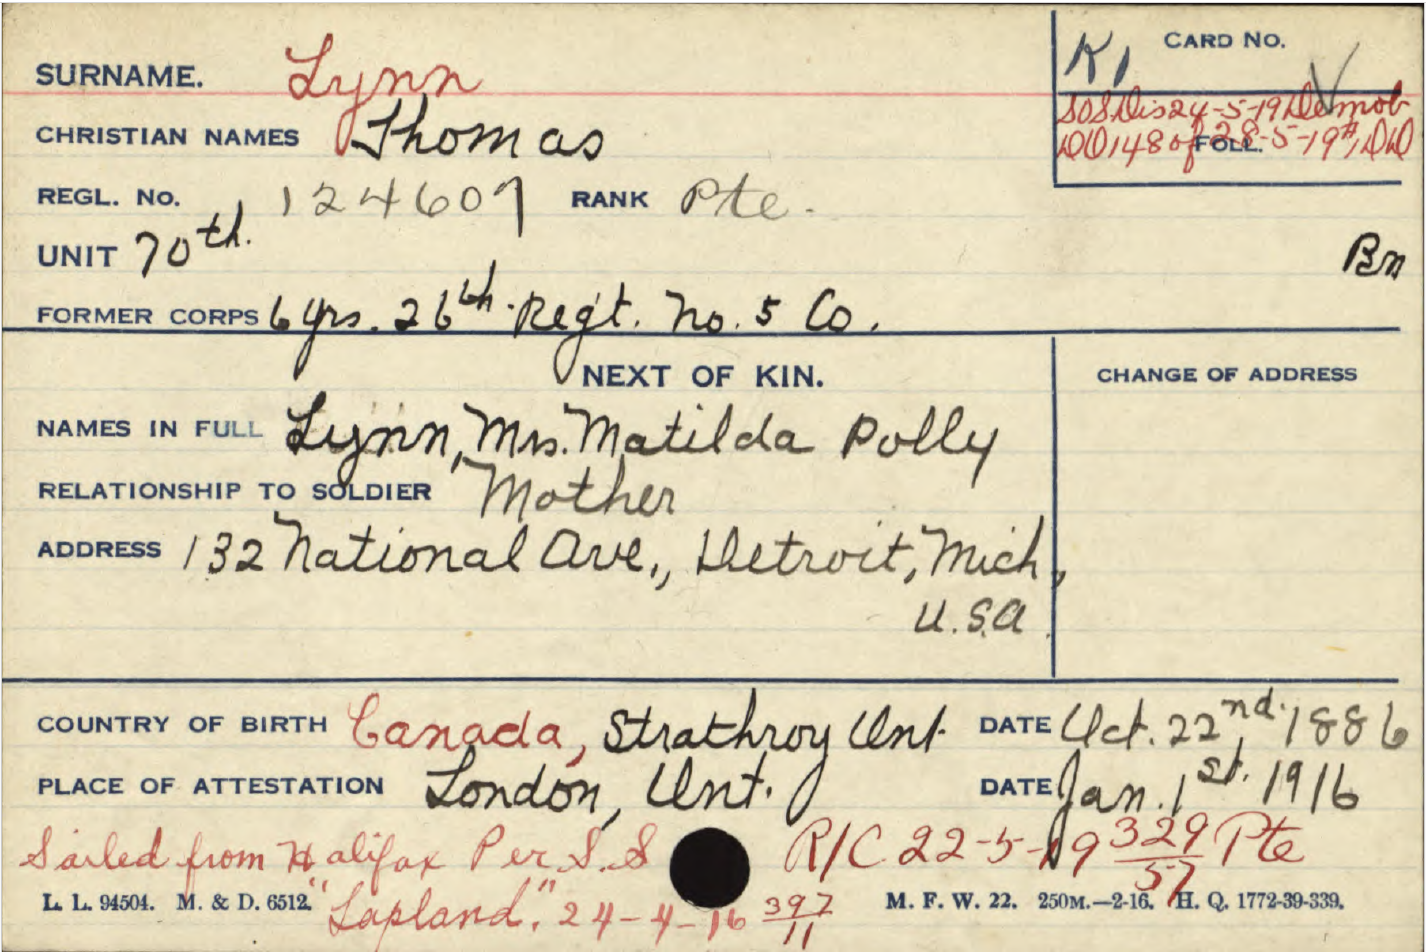 K1 CARD NO.
SURNAME. Lynn
SOS Dis 24-5-19 Demob
CHRISTIAN NAMES Thomas
DO 148 of 28-5-19 FOLL. DD
REGL. No. 124607 RANK Pte.
UNIT 70th. Bn
FORMER CORPS 6 yrs. 26th. Regt. No. 5 Co.
NEXT OF KIN.
CHANGE OF ADDRESS
NAMES IN FULL Lynn, Mrs. Matilda Polly
RELATIONSHIP TO SOLDIER Mother
ADDRESS 132 National Ave., Detroit, Mich,
U.S.A
COUNTRY OF BIRTH Canada, Strathroy Ont. DATE Oct. 22nd. 1886
PLACE OF ATTESTATION London, Ont. DATE Jan. 1st. 1916
Sailed from Halifax Per S.S R/C 22-5-19 329/57 Pte
L. L. 94504. M. & D. 6512. "Lapland." 24-4-16 397/11 M. F. W. 22. 250M.—2-16. H. Q. 1772-39-339.